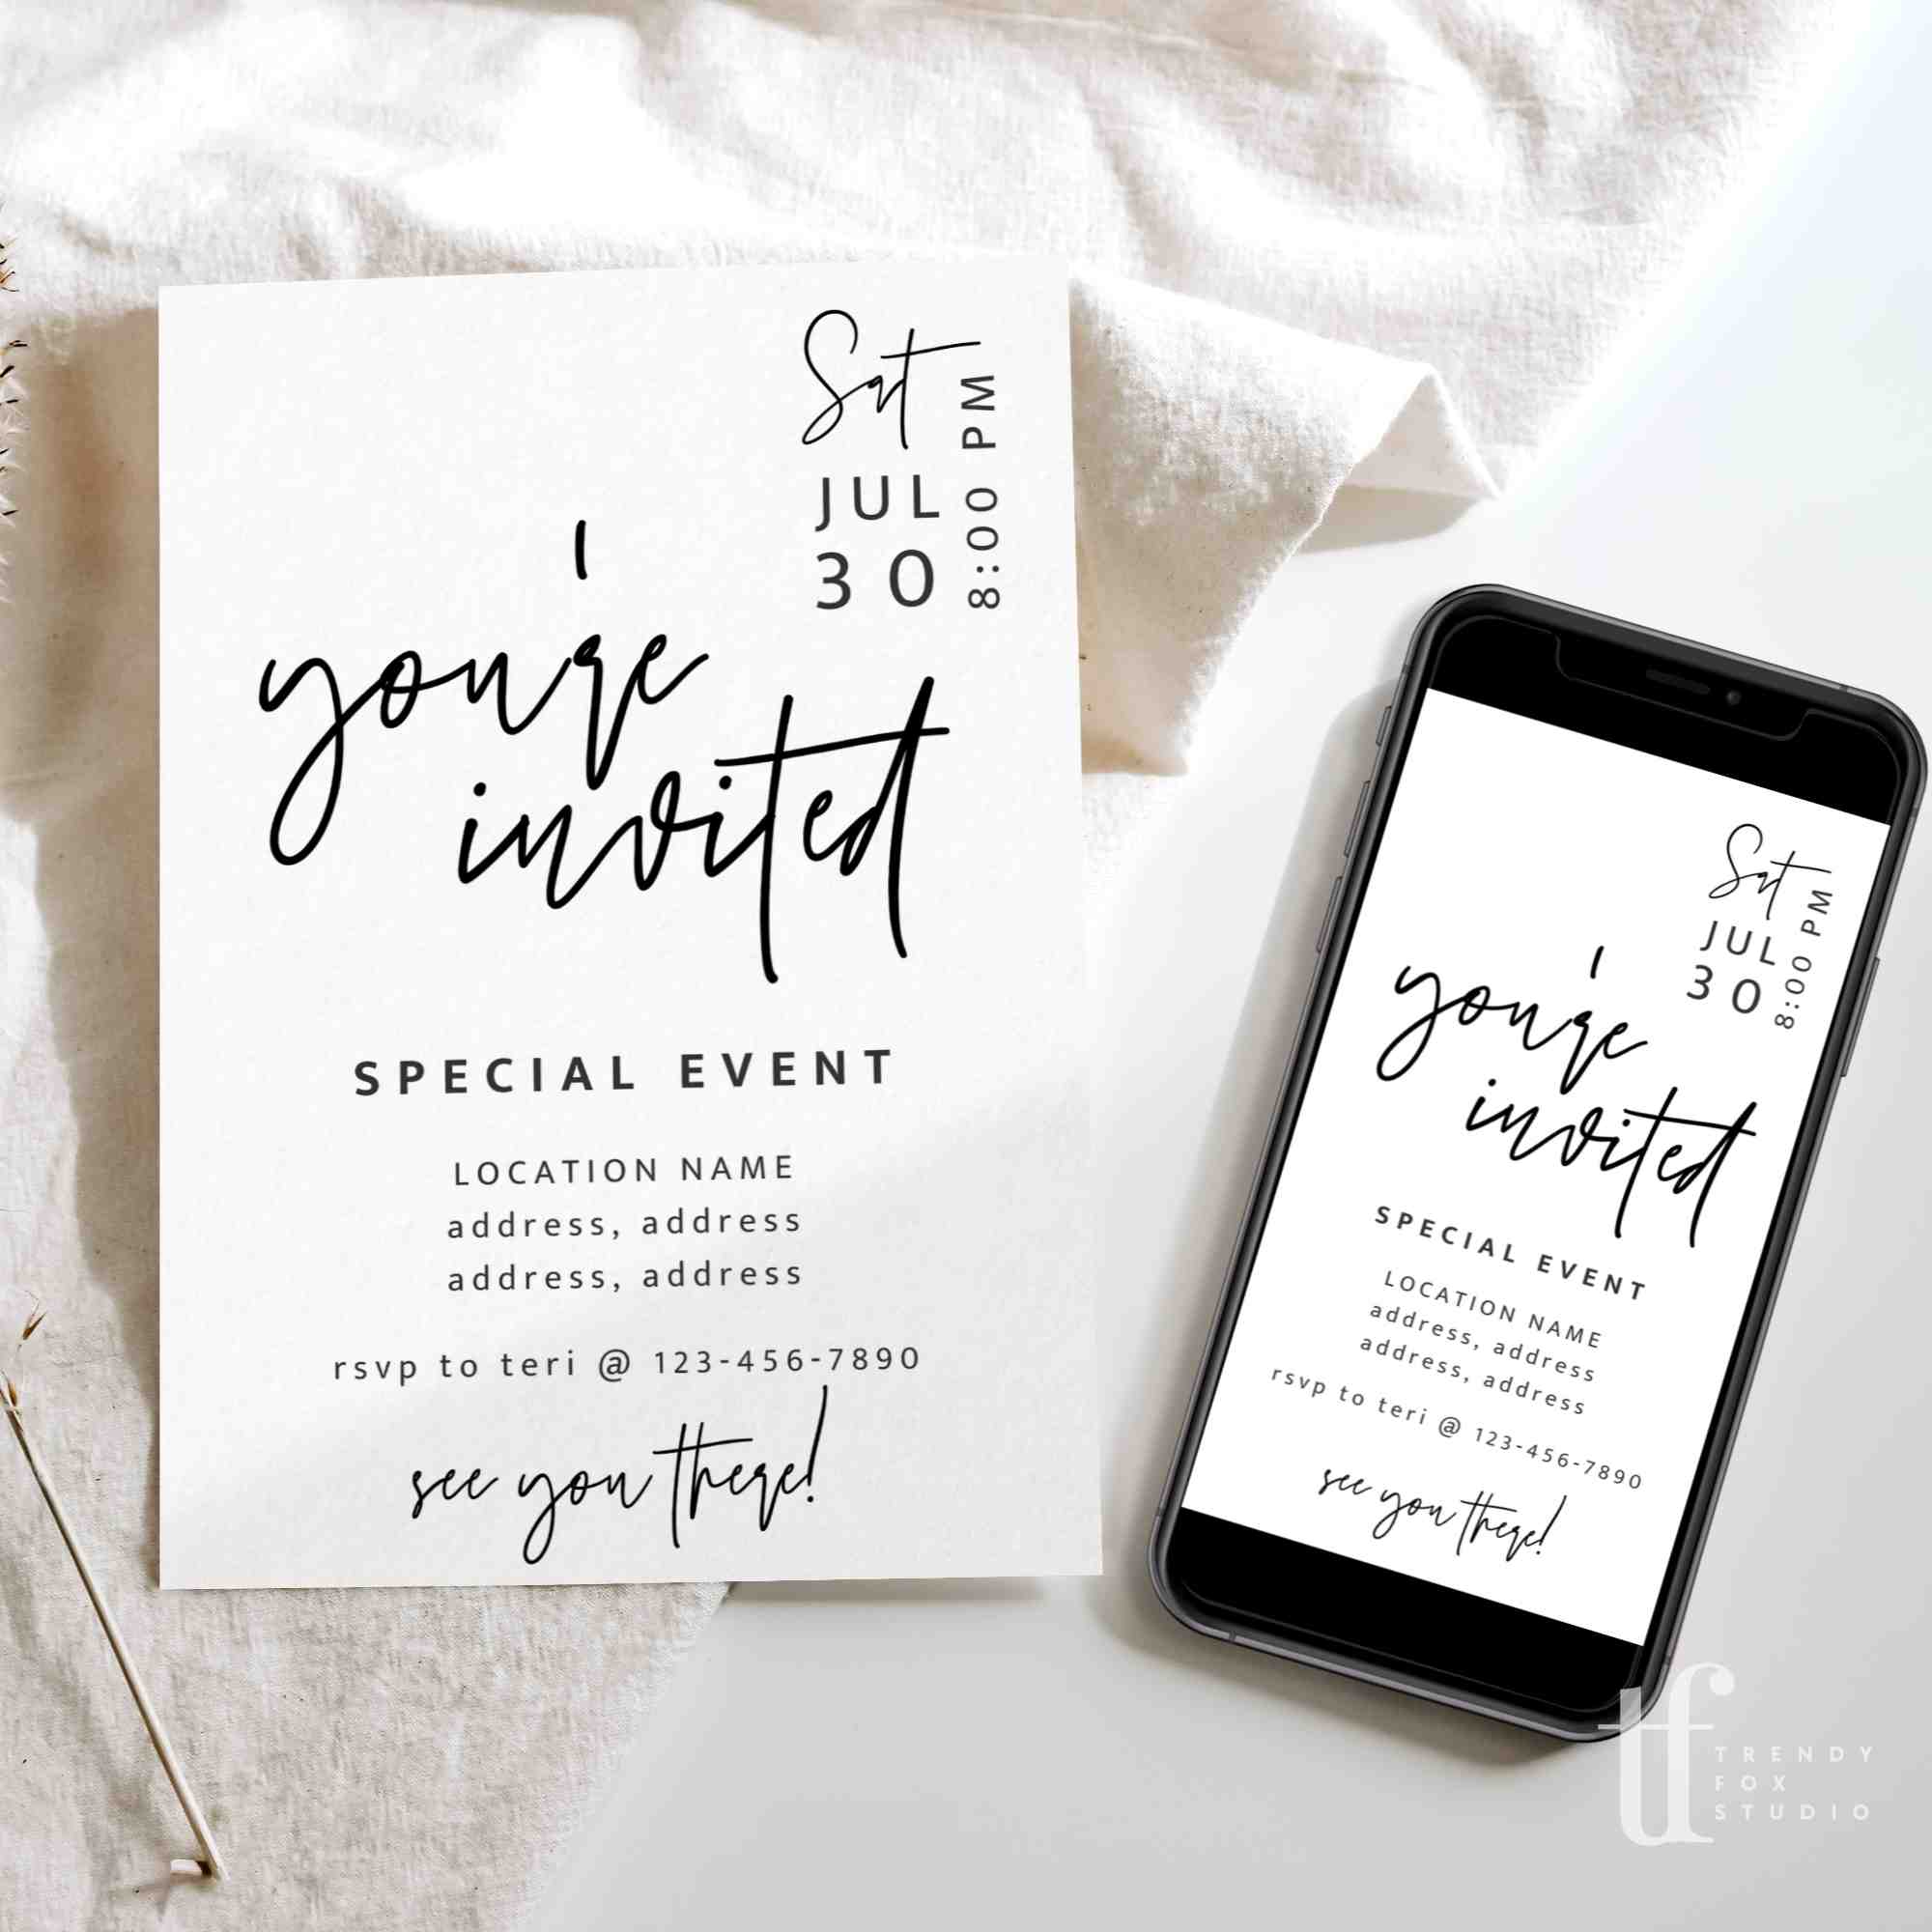 Sat
JUL
30
8:00 PM
you're
invited
SPECIAL EVENT
LOCATION NAME
address, address
address, address
rsvp to teri @ 123-456-7890
see you there!
Sat
JUL
30
8:00 PM
you're
invited
SPECIAL EVENT
LOCATION NAME
address, address
address, address
rsvp to teri @ 123-456-7890
see you there!
tf
TRENDY
FOX
STUDIO